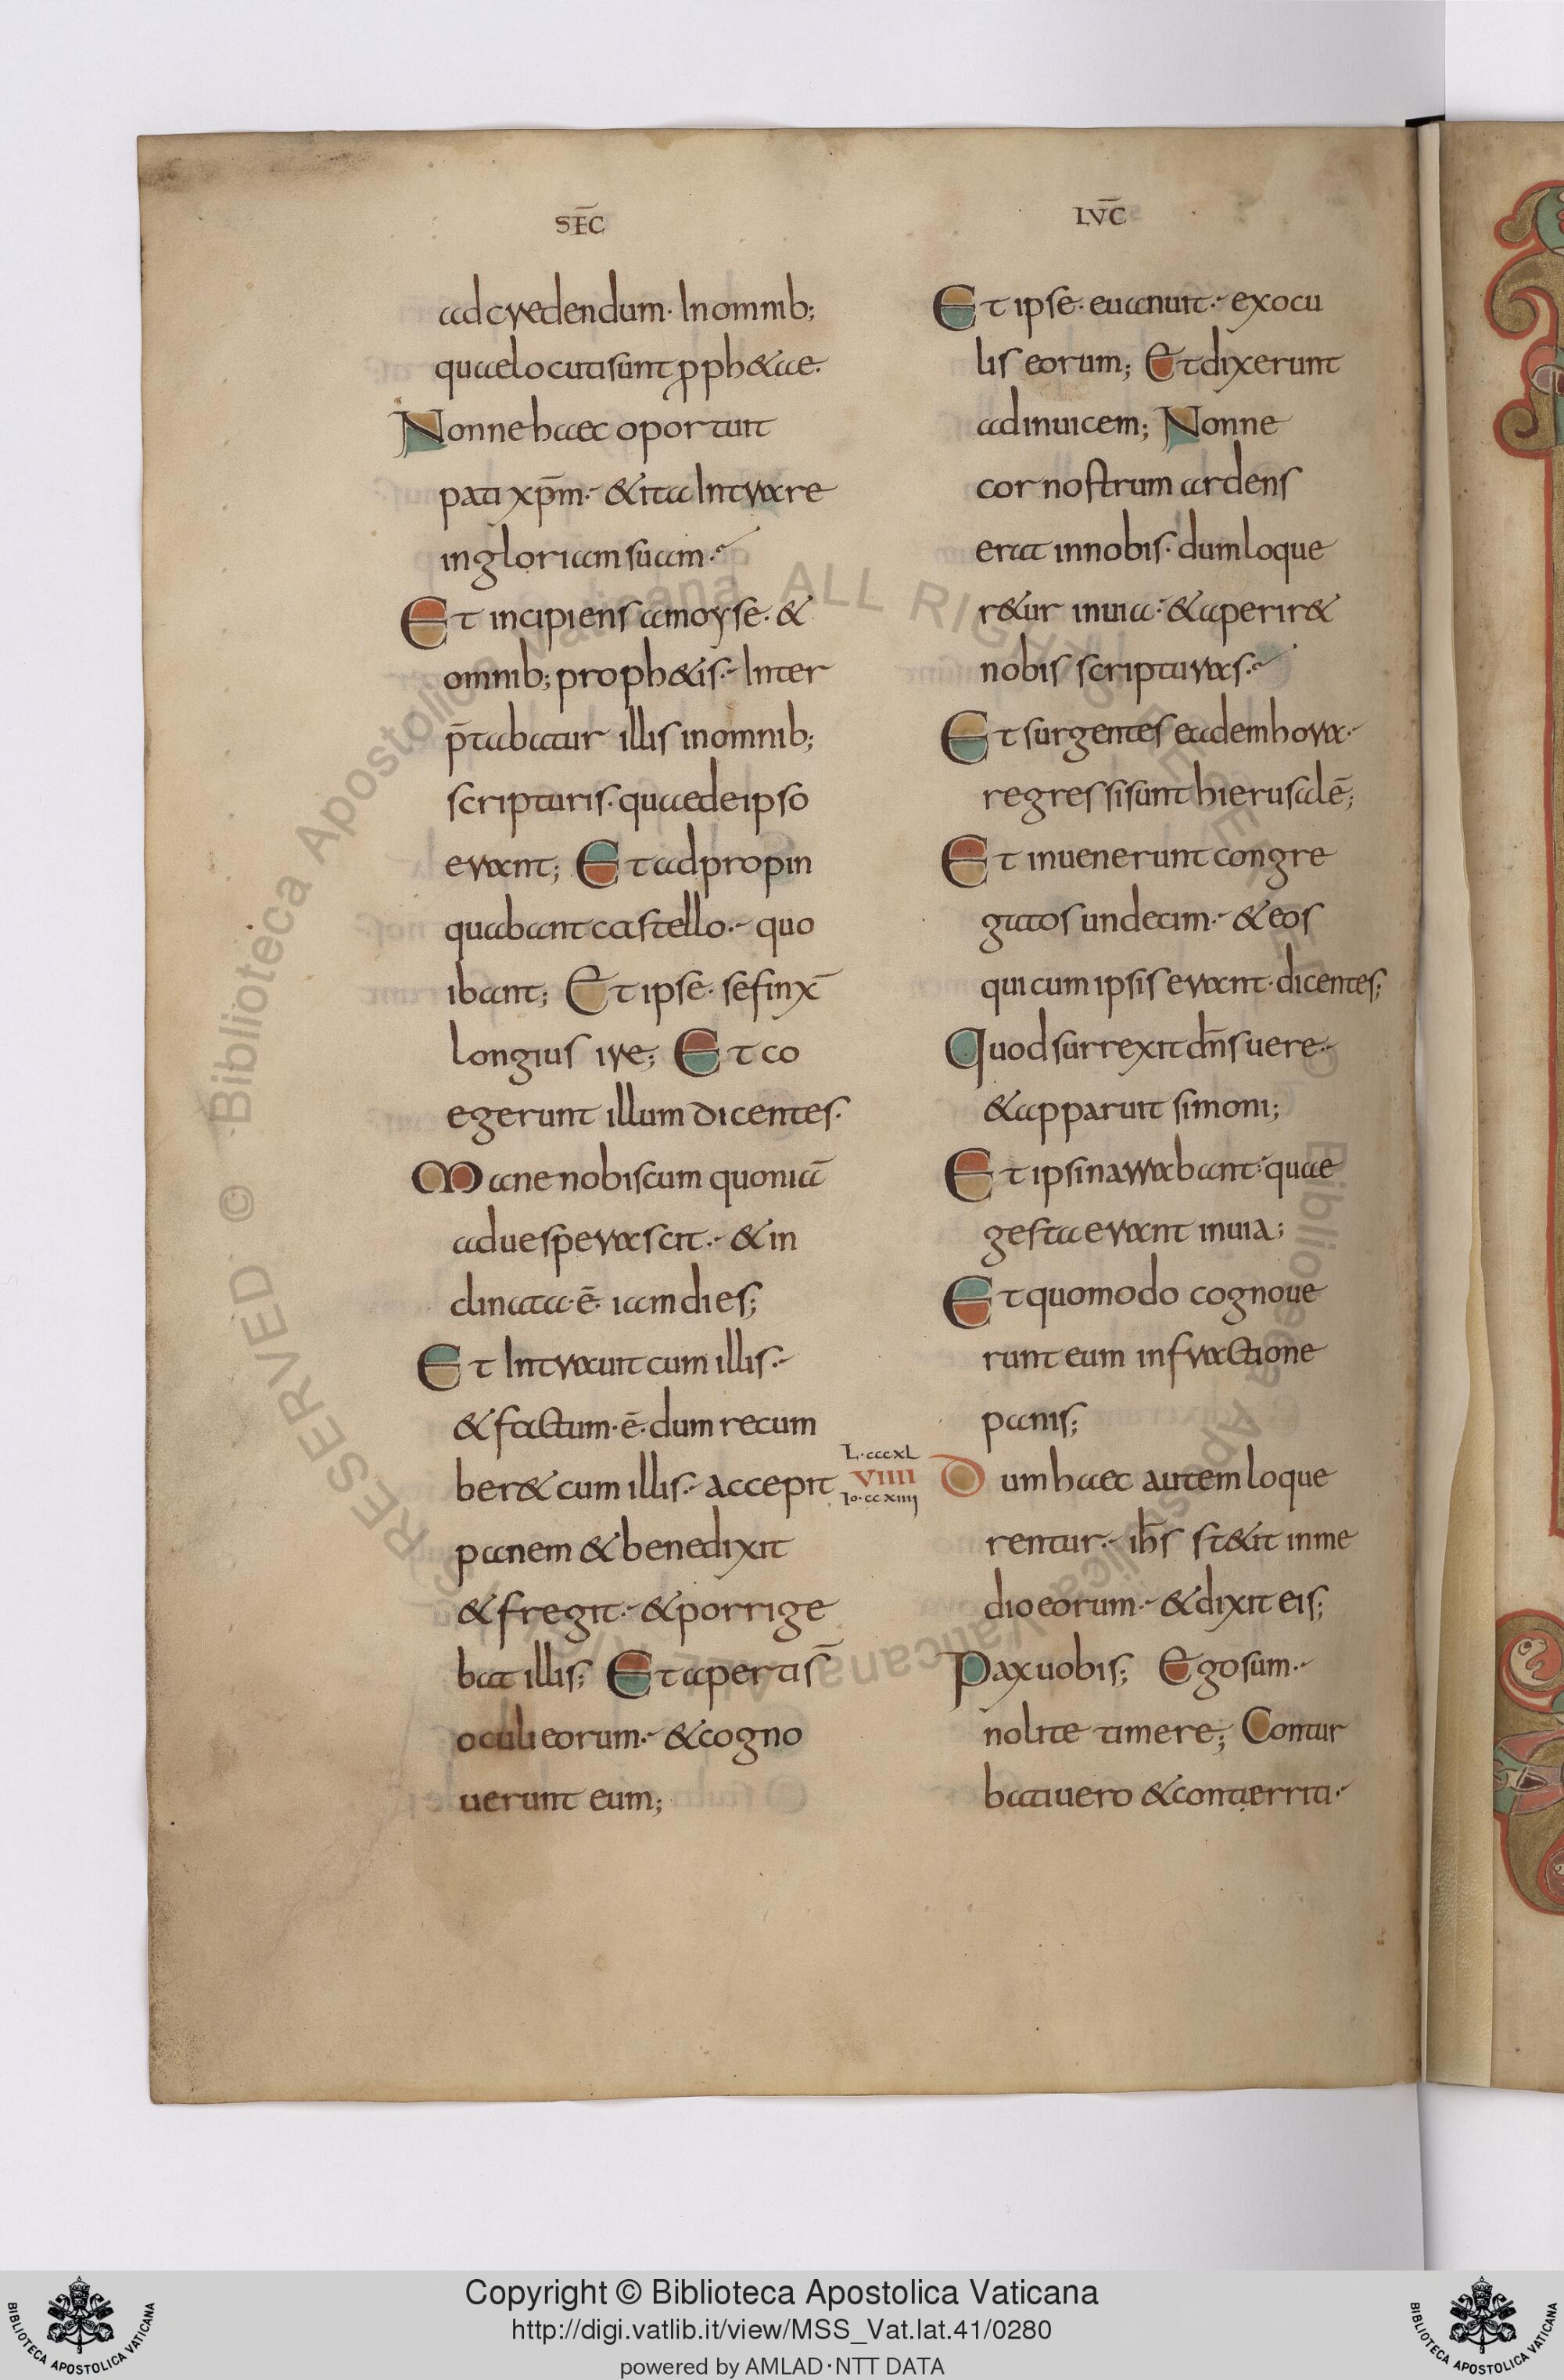 SEC̅
ad credendum· In omnib;
quae locuti sunt p̱ph&ae·
Nonne haec oportuit
pati xp̅m·- & ita Intrare
in gloriam suam·-
Et incipiens a moyse· &
omnib; proph&is·- Inter
p̅tabatur illis in omnib;
scripturis· quae de ipso
erant; Et adpropin
quabant castello·- quo
ibant; Et ipse· se finx̅
longius ire; Et co
egerunt illum dicentes·
Mane nobiscum quonia̅
aduesperascit·- & in
clinata· e̅· iam dies;
Et Intrauit cum illis·-
& factum· e̅· dum recum
ber& cum illis·- accepit
panem & benedixit
& fregit·- & porrige
bat illis; Et apertis̅
oculi eorum·- & cogno
uerunt eum;
LVC̅
Et ipse· euanuit·- ex ocu
lis eorum; Et dixerunt
adinuicem; Nonne
cor nostrum ardens
erat in nobis· dum loque
r&ur in uia·- & aperir&
nobis scripturas·-
Et surgentes eadem hora·-
regressi sunt hierusale̅;
Et inuenerunt congre
gatos undecim·- & eos
qui cum ipsis erant· dicentes;
Quod surrexit dn̅s uere·-
& apparuit simoni;
Et ipsi narrabant·- quae
gesta erant in uia;
Et quomodo cognoue
runt eum in fractione
panis;
L·cccxl
VIIII
Io·ccxiiii
Dum haec autem loque
rentur·- ih̅s st&it in me
dio eorum·- & dixit eis;
Pax uobis; Ego sum·-
nolite timere; Contur
bati uero & contierriti·-
Copyright © Biblioteca Apostolica Vaticana
http://digi.vatlib.it/view/MSS_Vat.lat.41/0280
powered by AMLAD·NTT DATA
BIBLIOTECA APOSTOLICA VATICANA
BIBLIOTECA APOSTOLICA VATICANA
© Biblioteca Apostolica Vaticana ALL RIGHTS RESERVED
© Biblioteca Apostolica Vaticana ALL RIGHTS RESERVED